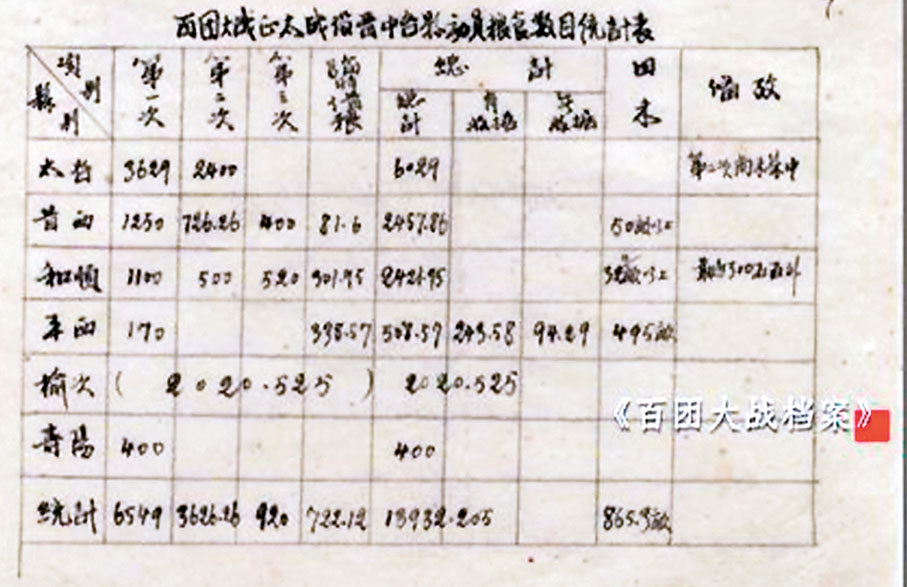 百团大战正太战役晋中各县动员粮食数目统計表
項別 縣別 第一次 第二次 第三次 總計 田禾 備攷
總計 有收據 無收據
太谷 3629 2400 6029 第二次尚未集中
昔西 1250 726.26 400 81.6 2457.86 50畝以上
和順 1100 500 520 301.95 2421.95 32畝以上
平西 170 338.57 508.57 243.58 94.29 495畝
榆次 ( 2020.525 ) 2020.525
壽陽 400 400
統計 6549 3626.26 920 722.12 13932.205 865.3畝
《百团大战档案》